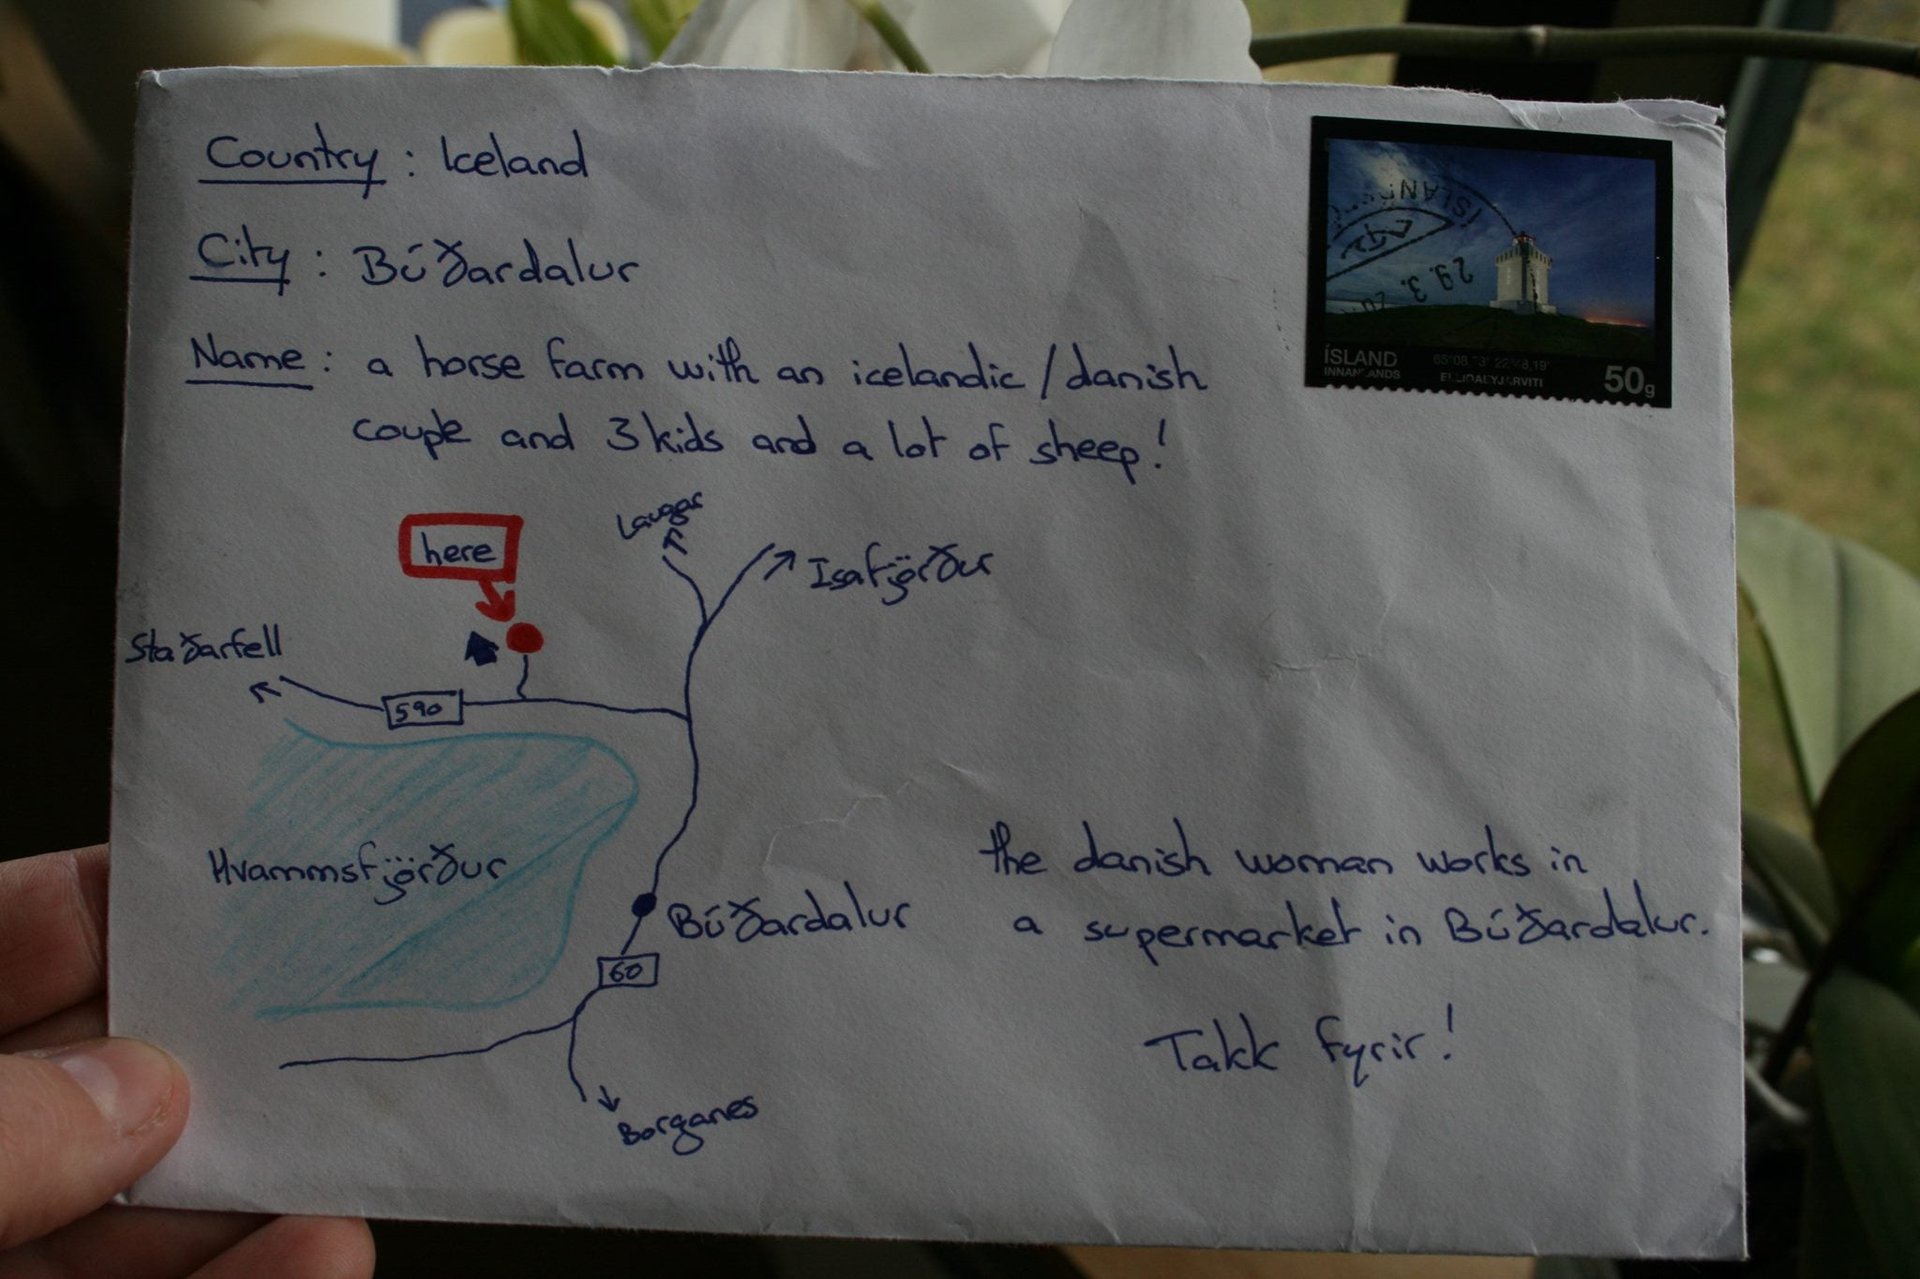 Country : Iceland
City : Búðardalur
Name : a horse farm with an icelandic / danish
couple and 3 kids and a lot of sheep!
here
Laugar
Isafjörður
Staðarfell
590
Hvammsfjörður
Búðardalur
60
Borganes
the danish woman works in
a supermarket in Búðardalur.
Takk fyrir!
ÍSLAND
29.3.
ÍSLAND
INNANLANDS
50g